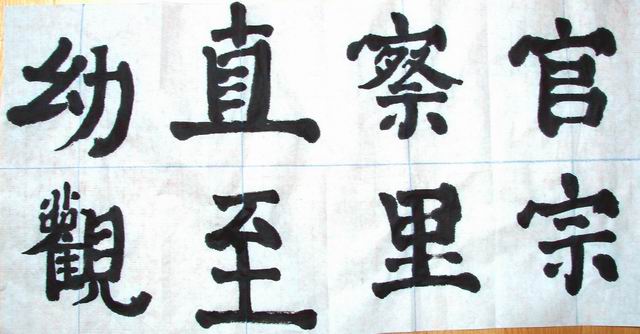 官宗
察里
直至
幼觀